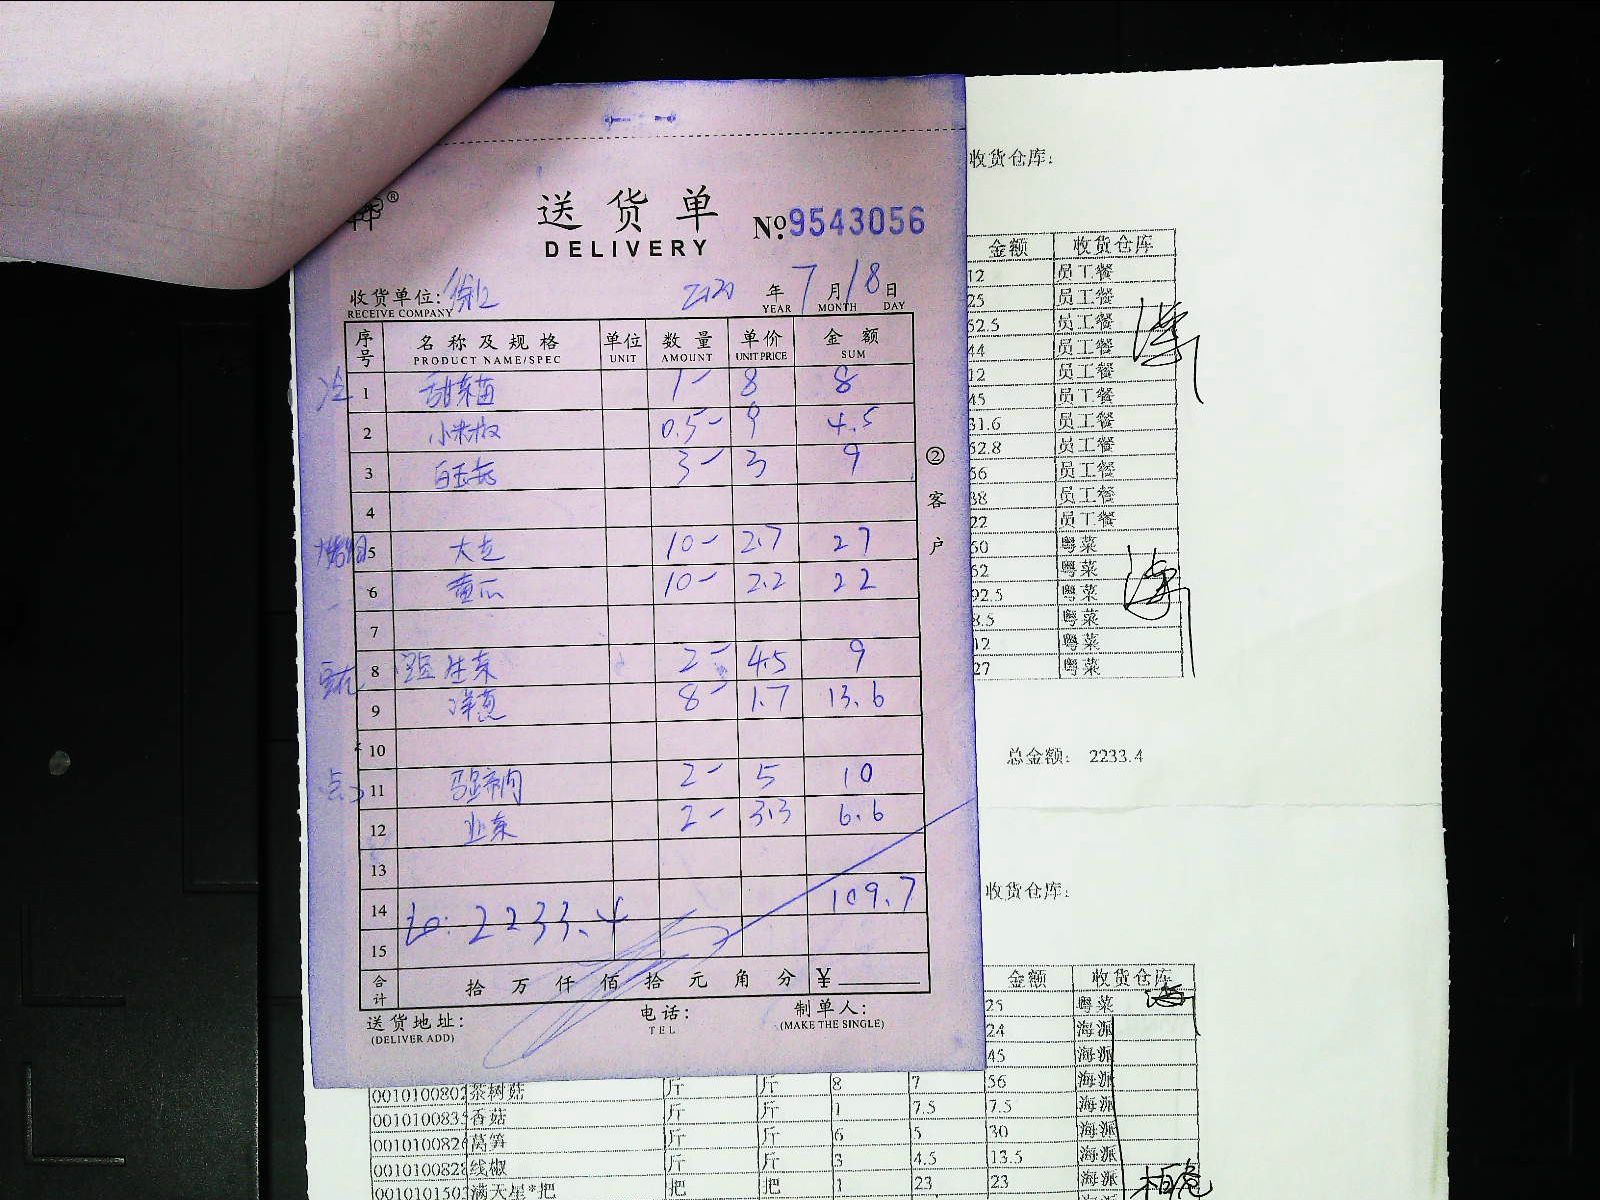 送货单
DELIVERY
№9543056
收货单位: 徐汇 2020 年 7 月 18 日
RECEIVE COMPANY YEAR MONTH DAY
序号 名称及规格 单位 数量 单价 金额
PRODUCT NAME/SPEC UNIT AMOUNT UNIT PRICE SUM
冷 1 甜菜苗 1- 8 8
2 小米椒 0.5- 9 4.5
3 3- 3 9
4
5 大 10- 2.7 27
6 黄瓜 10- 2.2 22
7
8 生菜 2- 4.5 9
9 洋葱 8- 1.7 13.6
10
点 11 马蹄肉 2- 5 10
12 2- 3.3 6.6
13
14 2233.4 109.7
15
合计 拾 万 仟 佰 拾 元 角 分 ¥
送货地址: 电话: 制单人:
(DELIVER ADD) TEL (MAKE THE SINGLE)
②客户
收货仓库:
金额 收货仓库
12 员工餐
25 员工餐
52.5 员工餐
44 员工餐
12 员工餐
45 员工餐
31.6 员工餐
52.8 员工餐
56 员工餐
38 员工餐
22 员工餐
50 粤菜
52 粤菜
92.5 粤菜
8.5 粤菜
12 粤菜
27 粤菜
总金额: 2233.4
收货仓库:
金额 收货仓库
25 粤菜
24 海派
45 海派
001010080 茶树菇 斤 斤 8 7 56 海派
001010083 香菇 斤 斤 1 7.5 7.5 海派
001010082 莴笋 斤 斤 6 5 30 海派
001010082 线椒 斤 斤 3 4.5 13.5 海派
001010150 满天星*把 把 把 1 23 23 海派